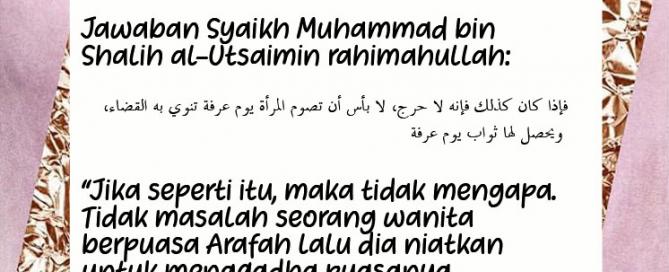 Jawaban Syaikh Muhammad bin
Shalih al-Utsaimin rahimahullah:
فإذا كان كذلك فإنه لا حرج، لا بأس أن تصوم المرأة يوم عرفة تنوي به القضاء،
ويحصل لها ثواب يوم عرفة
“Jika seperti itu, maka tidak mengapa.
Tidak masalah seorang wanita
berpuasa Arafah lalu dia niatkan
untuk mengqadha puasanya